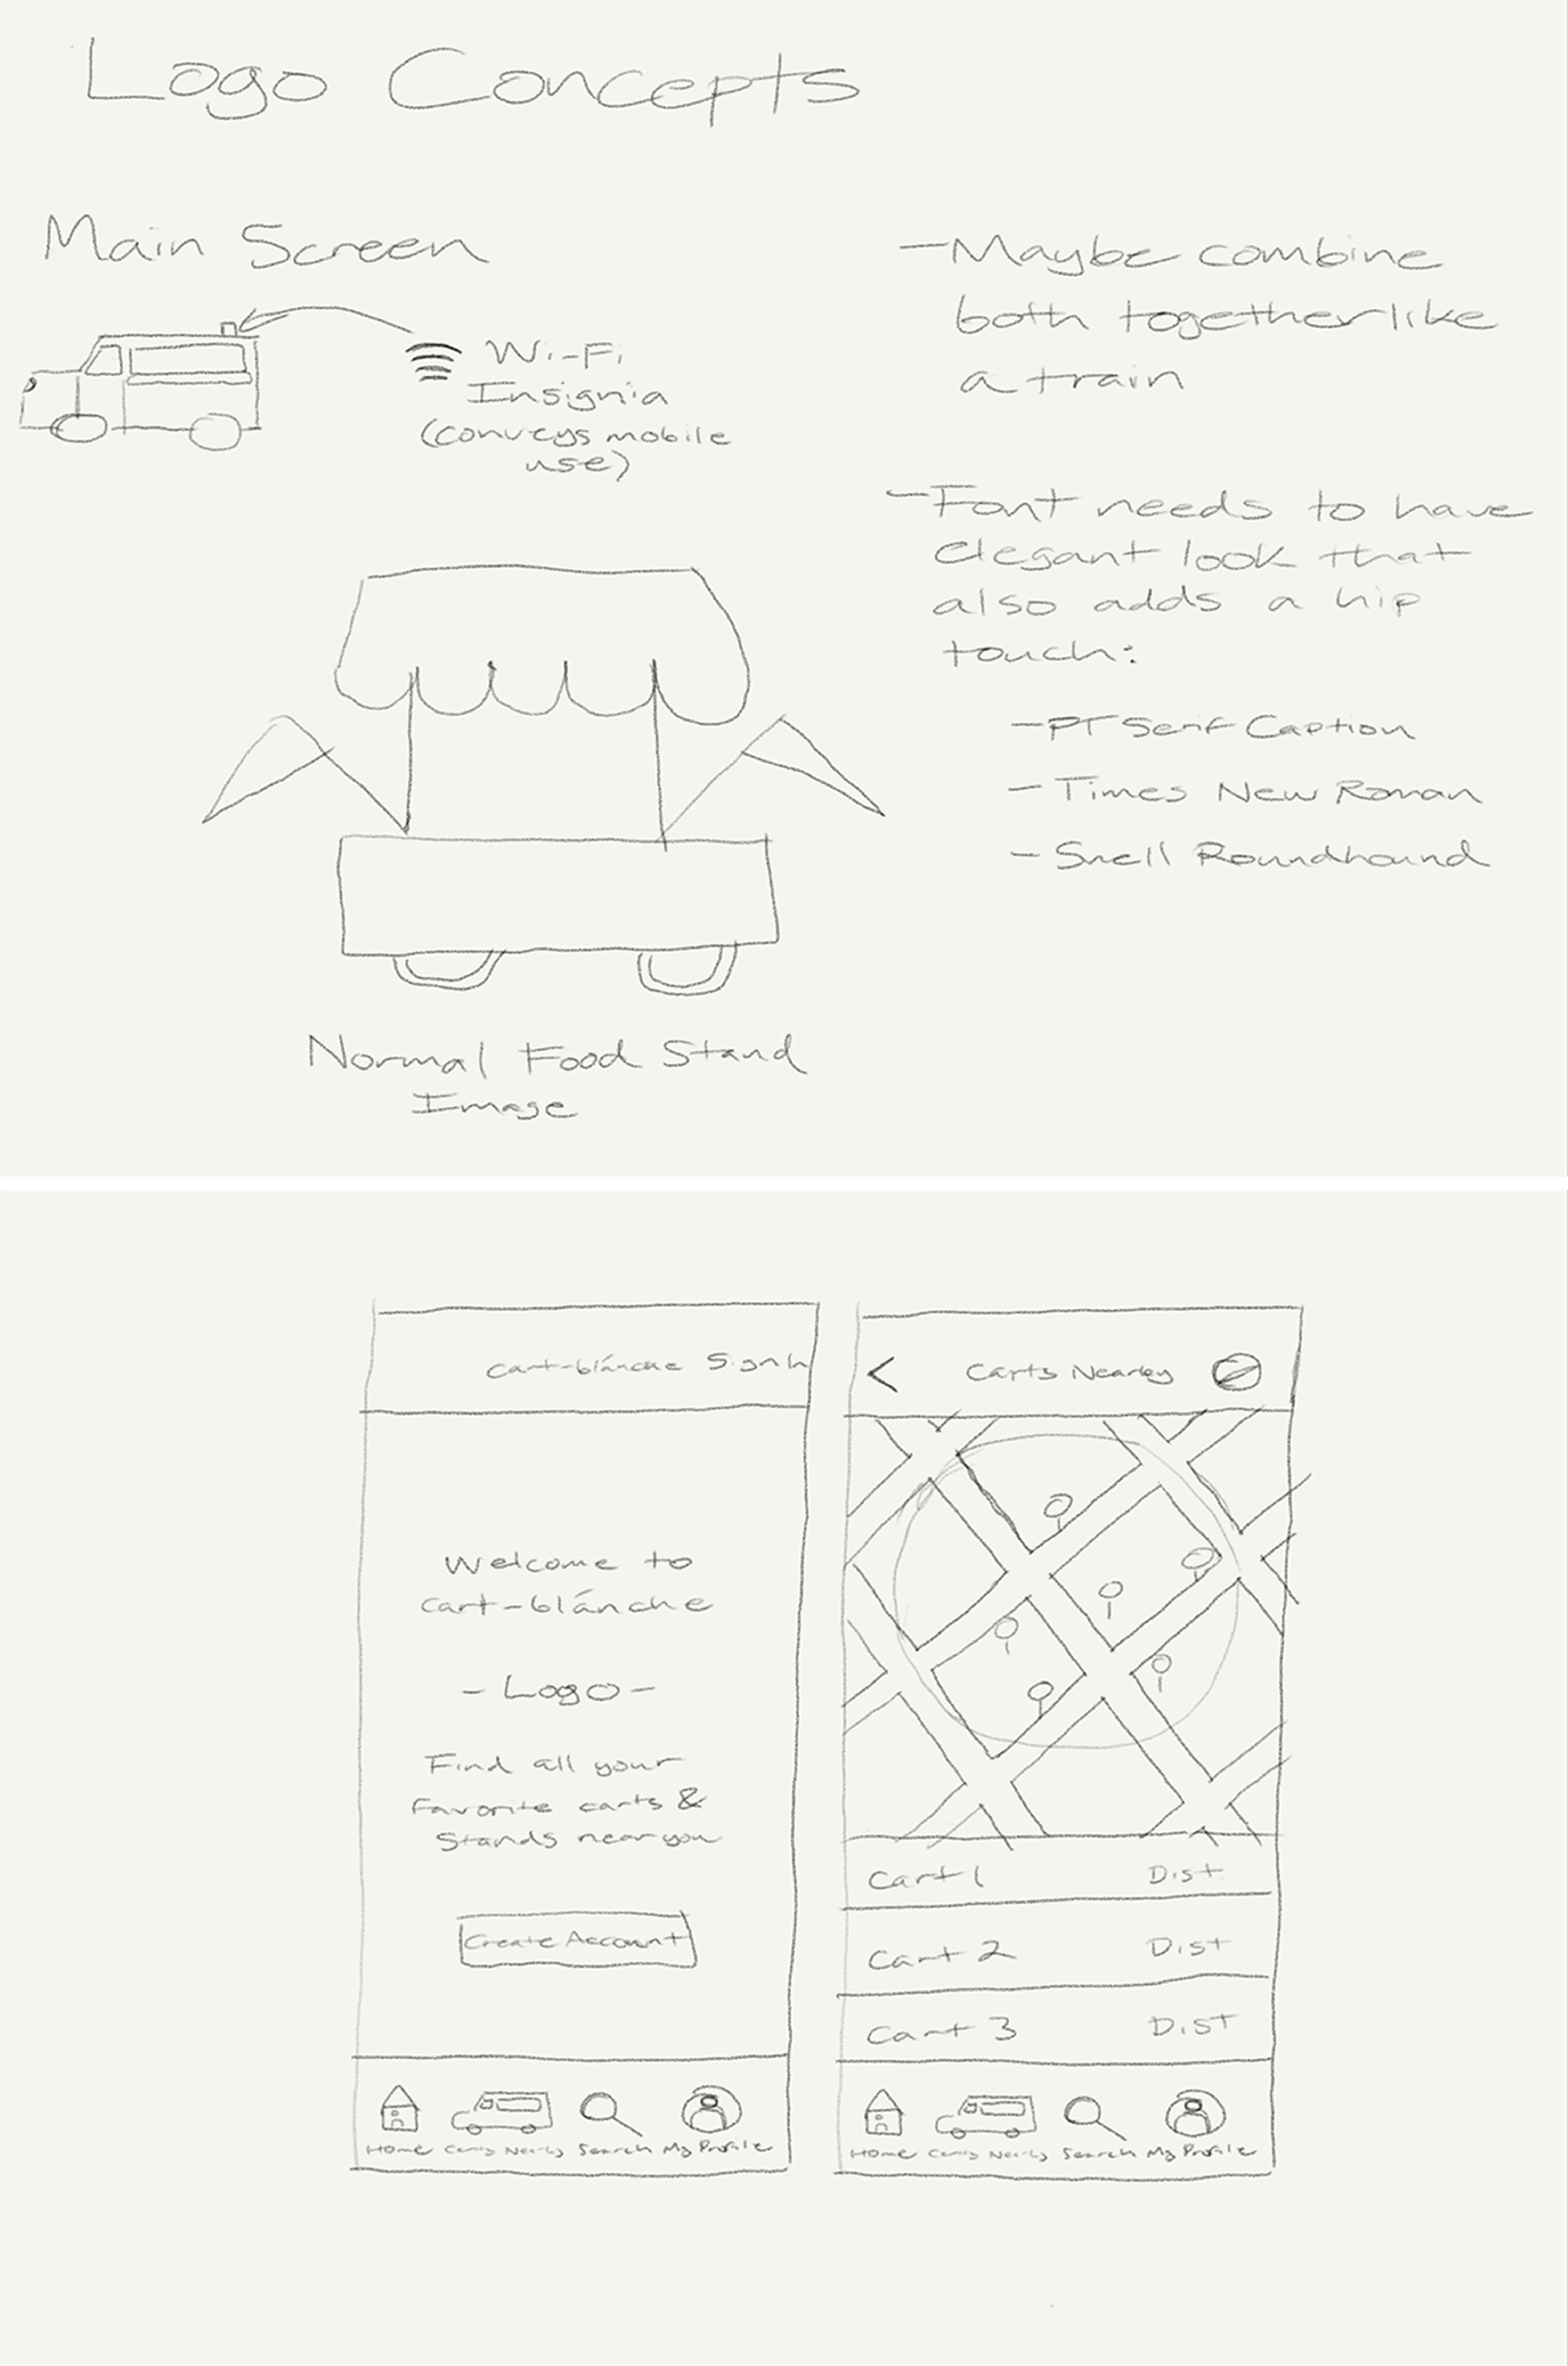 Logo Concepts
Main Screen
Wi-Fi
Insignia
(conveys mobile
use)
Normal Food Stand
Image
-Maybe combine
both together like
a train
-Font needs to have
elegant look that
also adds a hip
touch:
-PT Serif Caption
- Times New Roman
- Snell Roundhound
cart-blánche Sign In
Welcome to
cart-blánche
- Logo -
Find all your
favorite carts &
stands near you
Create Account
Home Carts Nearby Search My Profile
< Carts Nearby
Cart 1 Dist
Cart 2 Dist
Cart 3 Dist
Home Carts Nearby Search My Profile